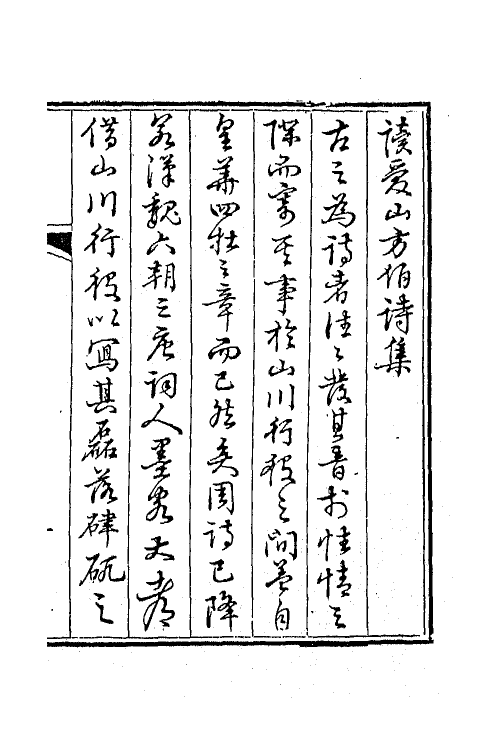 讀愛山方伯詩集
古之為詩者往〻發其音於性情之
際而寄其事於山川行役之間蓋自
皇華四牡之章而已然矣周詩已降
若漢魏六朝三唐詞人墨客大都
借山川行役以寫其磊落硉矹之